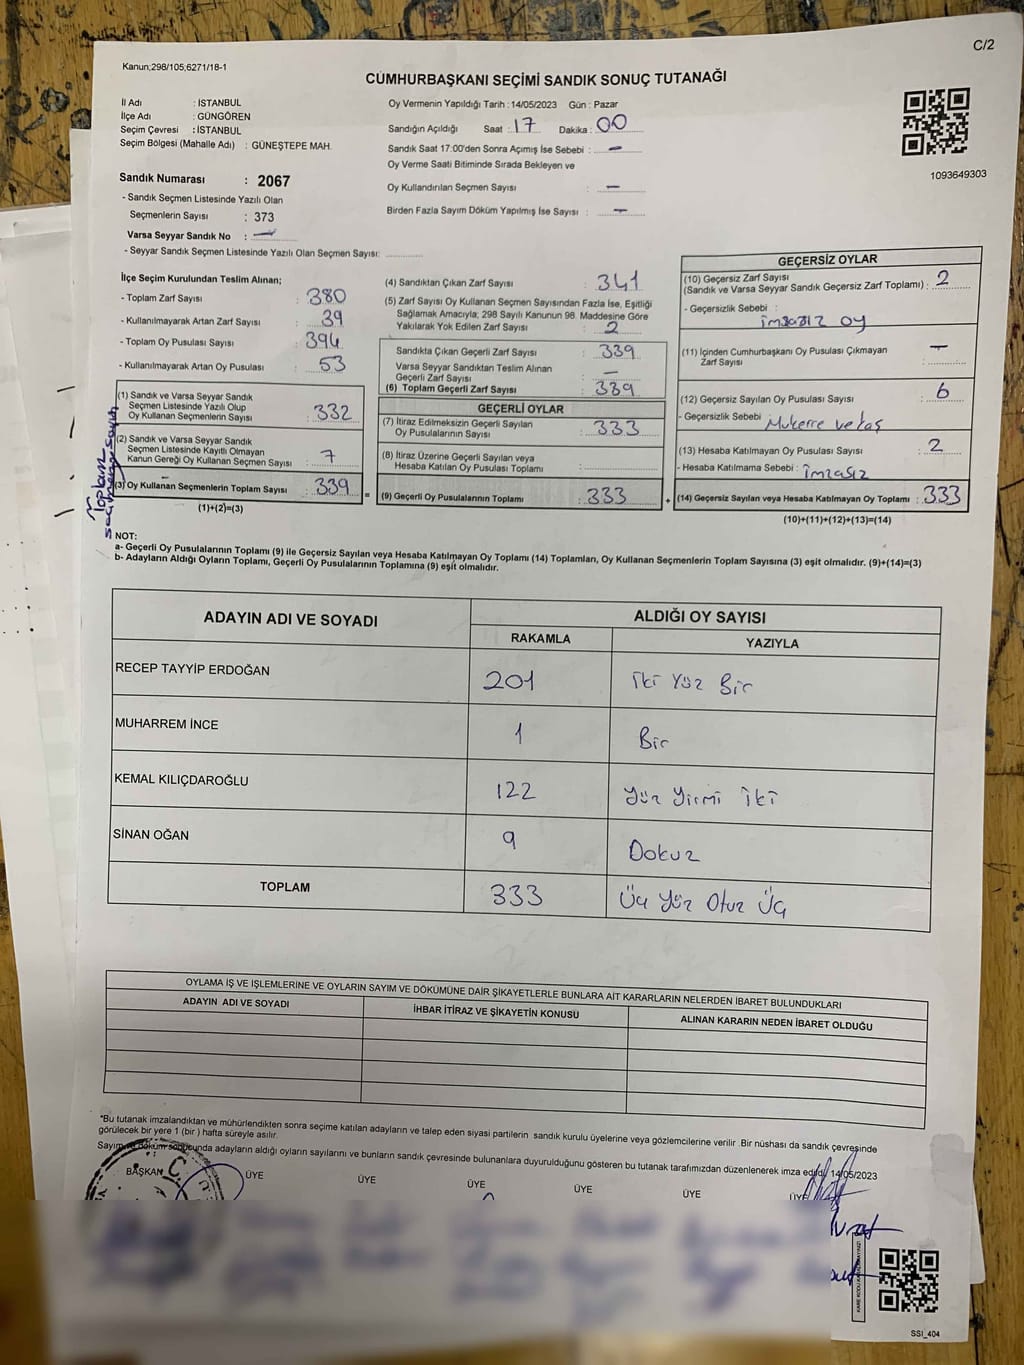 C/2
Kanun;298/105,6271/18-1
CUMHURBAŞKANI SEÇİMİ SANDIK SONUÇ TUTANAĞI
İl Adı : İSTANBUL
İlçe Adı : GÜNGÖREN
Seçim Çevresi : İSTANBUL
Seçim Bölgesi (Mahalle Adı) : GÜNEŞTEPE MAH.
Sandık Numarası : 2067
- Sandık Seçmen Listesinde Yazılı Olan
Seçmenlerin Sayısı : 373
Varsa Seyyar Sandık No : —
- Seyyar Sandık Seçmen Listesinde Yazılı Olan Seçmen Sayısı:
Oy Vermenin Yapıldığı Tarih : 14/05/2023 Gün : Pazar
Sandığın Açıldığı Saat : 17 Dakika : 00
Sandık Saat 17:00'den Sonra Açımış İse Sebebi : —
Oy Verme Saati Bitiminde Sırada Bekleyen ve
Oy Kullandırılan Seçmen Sayısı : —
Birden Fazla Sayım Döküm Yapılmış İse Sayısı : —
1093649303
İlçe Seçim Kurulundan Teslim Alınan;
- Toplam Zarf Sayısı : 380
- Kullanılmayarak Artan Zarf Sayısı : 39
- Toplam Oy Pusulası Sayısı : 394
- Kullanılmayarak Artan Oy Pusulası : 53
(1) Sandık ve Varsa Seyyar Sandık
Seçmen Listesinde Yazılı Olup
Oy Kullanan Seçmenlerin Sayısı : 332
(2) Sandık ve Varsa Seyyar Sandık
Seçmen Listesinde Kayıtlı Olmayan
Kanun Gereği Oy Kullanan Seçmen Sayısı : 7
(3) Oy Kullanan Seçmenlerin Toplam Sayısı : 339
(1)+(2)=(3)
Toplam
(4) Sandıktan Çıkan Zarf Sayısı : 341
(5) Zarf Sayısı Oy Kullanan Seçmen Sayısından Fazla İse, Eşitliği
Sağlamak Amacıyla; 298 Sayılı Kanunun 98. Maddesine Göre
Yakılarak Yok Edilen Zarf Sayısı : 2
Sandıkta Çıkan Geçerli Zarf Sayısı : 339
Varsa Seyyar Sandıktan Teslim Alınan
Geçerli Zarf Sayısı : —
(6) Toplam Geçerli Zarf Sayısı : 339
GEÇERLİ OYLAR
(7) İtiraz Edilmeksizin Geçerli Sayılan
Oy Pusulalarının Sayısı : 333
(8) İtiraz Üzerine Geçerli Sayılan veya
Hesaba Katılan Oy Pusulası Toplamı :
= (9) Geçerli Oy Pusulalarının Toplamı : 333 +
GEÇERSİZ OYLAR
(10) Geçersiz Zarf Sayısı
(Sandık ve Varsa Seyyar Sandık Geçersiz Zarf Toplamı) : 2
- Geçersizlik Sebebi : imzasız oy
(11) İçinden Cumhurbaşkanı Oy Pusulası Çıkmayan
Zarf Sayısı : —
(12) Geçersiz Sayılan Oy Pusulası Sayısı : 6
- Geçersizlik Sebebi : Mukerre ve taş
(13) Hesaba Katılmayan Oy Pusulası Sayısı : 2
- Hesaba Katılmama Sebebi : imzasız
(14) Geçersiz Sayılan veya Hesaba Katılmayan Oy Toplamı : 333
(10)+(11)+(12)+(13)=(14)
NOT:
a- Geçerli Oy Pusulalarının Toplamı (9) ile Geçersiz Sayılan veya Hesaba Katılmayan Oy Toplamı (14) Toplamları, Oy Kullanan Seçmenlerin Toplam Sayısına (3) eşit olmalıdır. (9)+(14)=(3)
b- Adayların Aldığı Oyların Toplamı, Geçerli Oy Pusulalarının Toplamına (9) eşit olmalıdır.
ADAYIN ADI VE SOYADI ALDIĞI OY SAYISI
RAKAMLA YAZIYLA
RECEP TAYYİP ERDOĞAN 201 İki Yüz Bir
MUHARREM İNCE 1 Bir
KEMAL KILIÇDAROĞLU 122 Yüz Yirmi iki
SİNAN OĞAN 9 Dokuz
TOPLAM 333 Üç Yüz Otuz Üç
OYLAMA İŞ VE İŞLEMLERİNE VE OYLARIN SAYIM VE DÖKÜMÜNE DAİR ŞİKAYETLERLE BUNLARA AİT KARARLARIN NELERDEN İBARET BULUNDUKLARI
ADAYIN ADI VE SOYADI İHBAR İTİRAZ VE ŞİKAYETİN KONUSU ALINAN KARARIN NEDEN İBARET OLDUĞU
*Bu tutanak imzalandıktan ve mühürlendikten sonra seçime katılan adayların ve talep eden siyasi partilerin sandık kurulu üyelerine veya gözlemcilerine verilir .Bir nüshası da sandık çevresinde
görülecek bir yere 1 (bir ) hafta süreyle asılır.
Sayım ve döküm sonucunda adayların aldığı oyların sayılarını ve bunların sandık çevresinde bulunanlara duyurulduğunu gösteren bu tutanak tarafımızdan düzenlenerek imza edildi. 14/05/2023
BAŞKAN ÜYE ÜYE ÜYE ÜYE ÜYE ÜYE
SSI_404